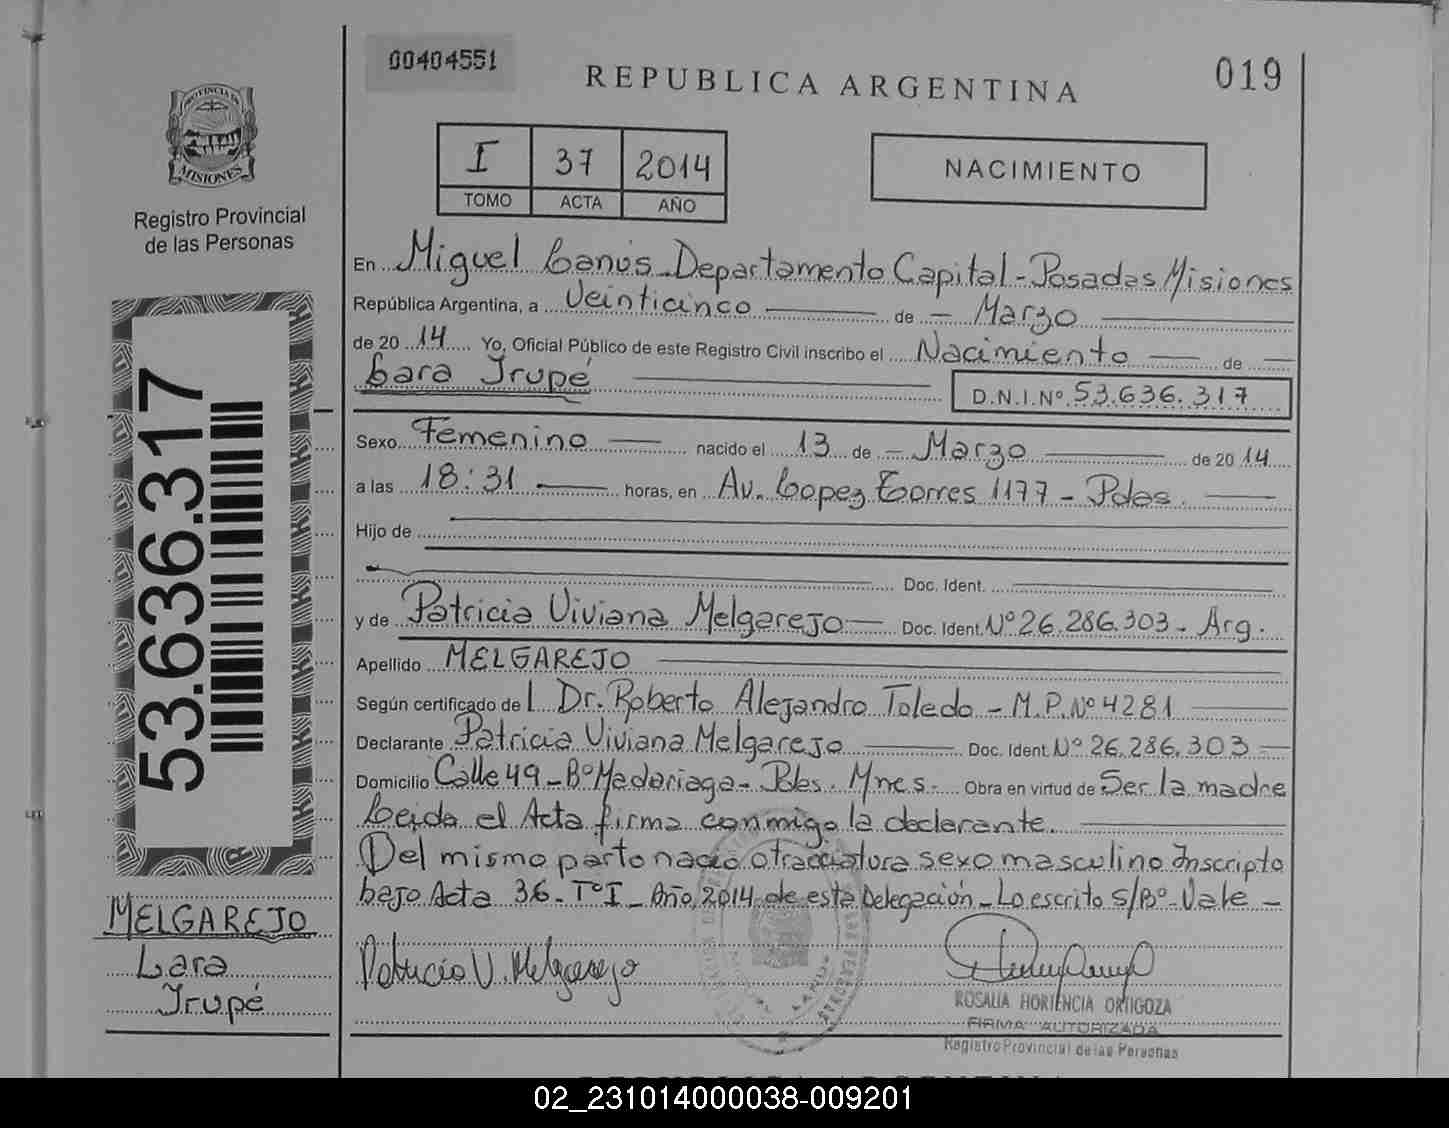 00404551
REPUBLICA ARGENTINA
019
PROVINCIA DE
MISIONES
Registro Provincial
de las Personas
I 37 2014
TOMO ACTA AÑO
NACIMIENTO
En Miguel Lanús - Departamento Capital - Posadas Misiones
República Argentina, a Veinticinco de - Marzo
de 20 14 Yo, Oficial Público de este Registro Civil inscribo el Nacimiento de
Lara Irupé
D.N.I.Nº 53.636.317
Sexo Femenino nacido el 13 de - Marzo de 20 14
a las 18:31 horas, en Av. Lopez Torres 1177 - Pdas.
Hijo de
Doc. Ident.
y de Patricia Viviana Melgarejo Doc. Ident. Nº 26.286.303 - Arg.
Apellido MELGAREJO
Según certificado de l Dr. Roberto Alejandro Toledo - M.P.Nº 4281
Declarante Patricia Viviana Melgarejo Doc. Ident. Nº 26.286.303
Domicilio Calle 49 - Bº Madariaga - Pdas. Mnes. Obra en virtud de Ser la madre
Leida el Acta firma conmigo la declarante.
Del mismo parto nació otra criatura sexo masculino Inscripto
bajo Acta 36 - Tº I - Año 2014 de esta Delegación - Lo escrito s/Bº - Vale -
Patricia V. Melgarejo
ROSALIA HORTENCIA ORTIGOZA
FIRMA AUTORIZADA
Registro Provincial de las Personas
53.636.317
MELGAREJO
Lara
Irupé
02_231014000038-009201